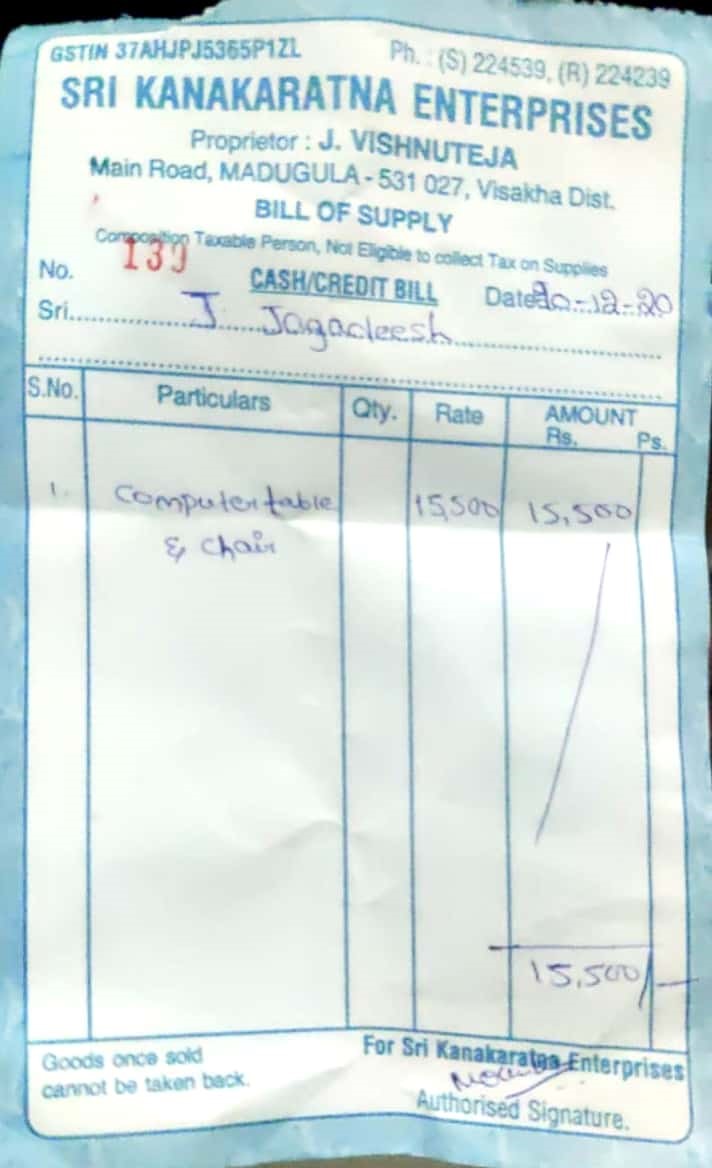 GSTIN 37AHJPJ5365P1ZL Ph. : (S) 224539, (R) 224239
SRI KANAKARATNA ENTERPRISES
Proprietor : J. VISHNUTEJA
Main Road, MADUGULA - 531 027, Visakha Dist.
BILL OF SUPPLY
Composition Taxable Person, Not Eligible to collect Tax on Supplies
No. 139 CASH/CREDIT BILL Date 20-12-20
Sri. J. Jagadeesh
S.No. Particulars Qty. Rate AMOUNT
Rs. Ps.
1. Computer table 15,500 15,500
& chair
15,500/-
Goods once sold For Sri Kanakaratna Enterprises
cannot be taken back.
Authorised Signature.